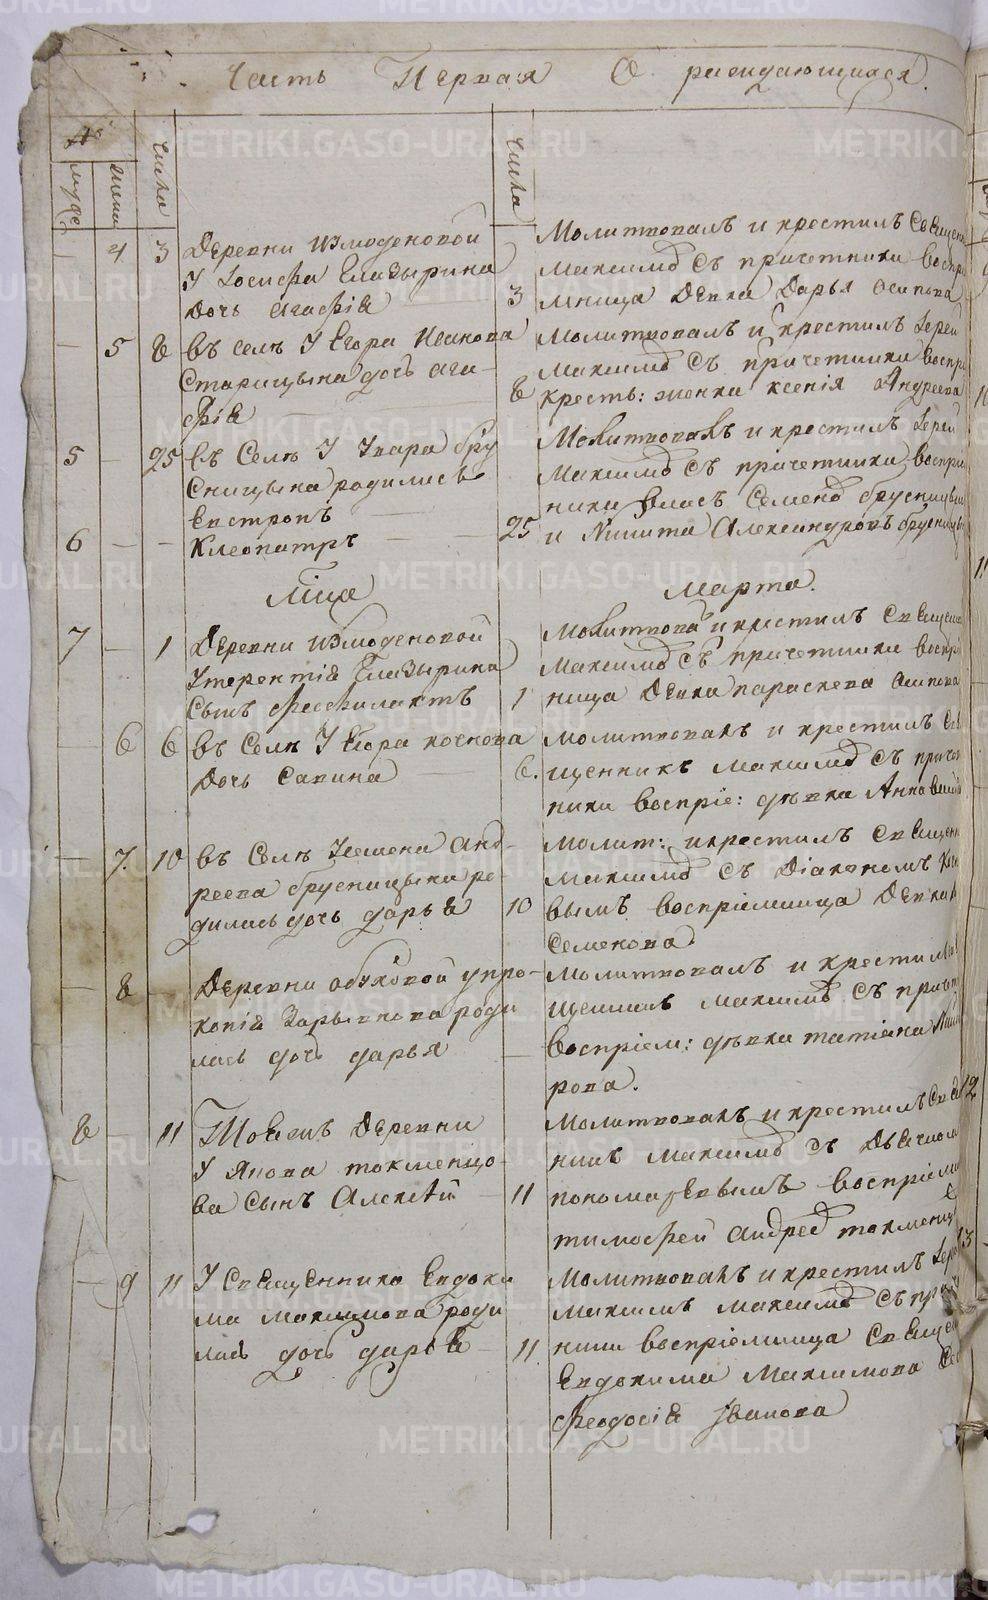 Часть Первая О раждающихся.
№
муже
женс
числа
числа
4 3 Деревни измоденовой
У Іосифа Глазырина
дочь агафіе
3
Молитвовалъ и крестилъ Свещен
Максимъ съ причетники воспрі
мница девка Дарья осипова
5 8 въ селѣ У Егора Иванова
Старицына дочь ага-
фіе
8
молитвовалъ и крестилъ Іерей
Максимъ съ причетники воспри
кресть: женка ксенія Андреева
5 25 въ Селѣ У Уара бру
сницына родились
Евстропъ
Молитвовалъ и крестилъ Іерей
Максимъ съ прічетники восприм
ники Власъ Семенъ брусницын
6 Клеопатръ 25 и Никита Александровъ брусницын
Мца Марта.
7 1 Деревни измоденовой
У терентіе Глазырина
сынъ феофилактъ
1
Молитвова и крестилъ Свещен
Максимъ съ причетники воспрі
ница девка параскева осипова
6 6 въ Селѣ У Егора
Дочь савина
6.
молитвовалъ и крестилъ Св
щенникъ максимъ съ приче
ники воспріе: дѣвка Анна
7. 10 въ Селѣ Усемена Анд-
реева брусницына ро
дилась дочь дарье
10
молит: икрестилъ свещен
максимъ съ Діакономъ
вымъ воспріемница Девка
Семенова
8 Деревни обуховой упро-
копіе Зарывнова роди
лась дочь дарья
молитвовалъ и крестилъ
щенникъ максимъ съ приче
воспріем: дѣвка татіана
рова.
8 11 Деревни
У Якова токменцо-
ва сынъ Алексѣй
11
молитвовалъ и крестилъ Свещ
никъ максимъ съ Дьячком
пономаревымъ воспріемн
тимофей андреевъ токменц
9 11 У Священника Евдоки
ма максимова роди
лась дочь дарье
11
молитвовалъ и крестилъ Іерей
максимъ максимовъ съ при
ники воспріемница Свеще
Евдокима Максимова
феодосіе Іванова